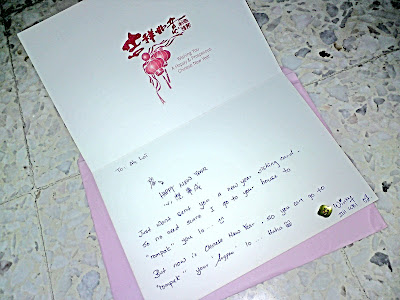 吉祥如意
Wishing You
A Happy & Prosperous
Chinese New Year
To: Ah Loi
HAPPY NEW YEAR
Just wanna send you a new year wishing card,
so no need worry I go to your house to
"rompak" you lo...
But now is Chinese New Year, so you can go to
"rompak" your lo... Haha